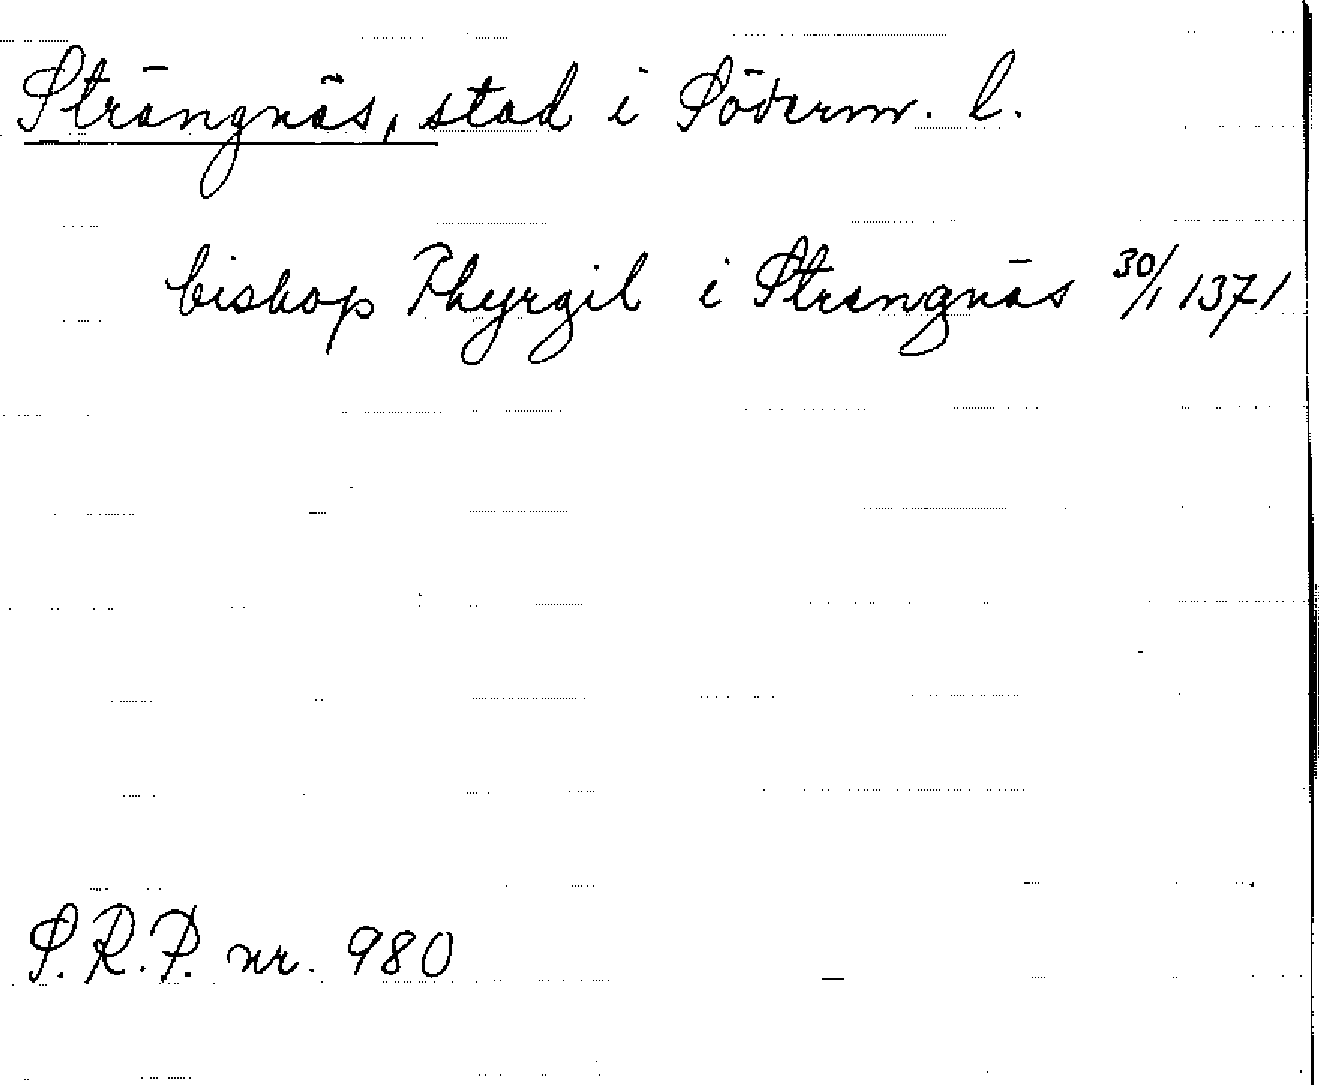 Strängnäs, stad i Söderm. l.
biskop Thyrgil i Strengnäs 30/1 1371
S.R.P. nr. 980